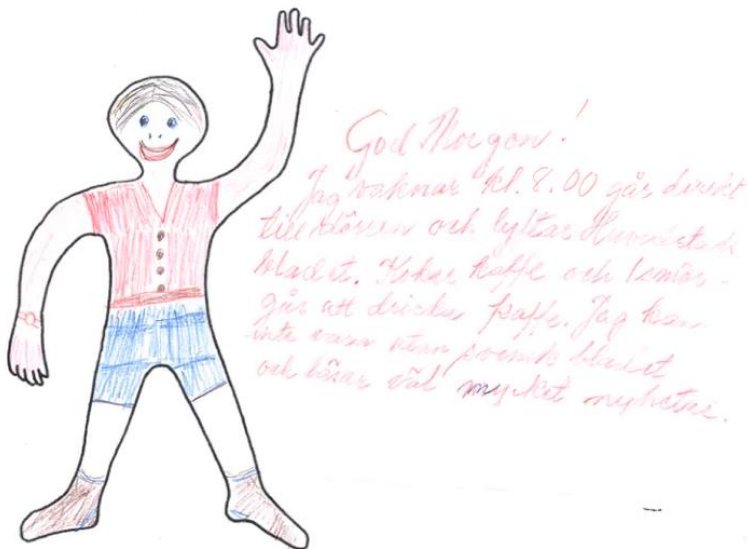 God Morgon!
Jag vaknar kl. 8.00 går direkt
till dörren och lyftar
bladet. Kokar kaffe och 1 smör-
gås att dricka kaffe. Jag kan
inte vara utan svensk bladet
och läser väl mycket nyheter.